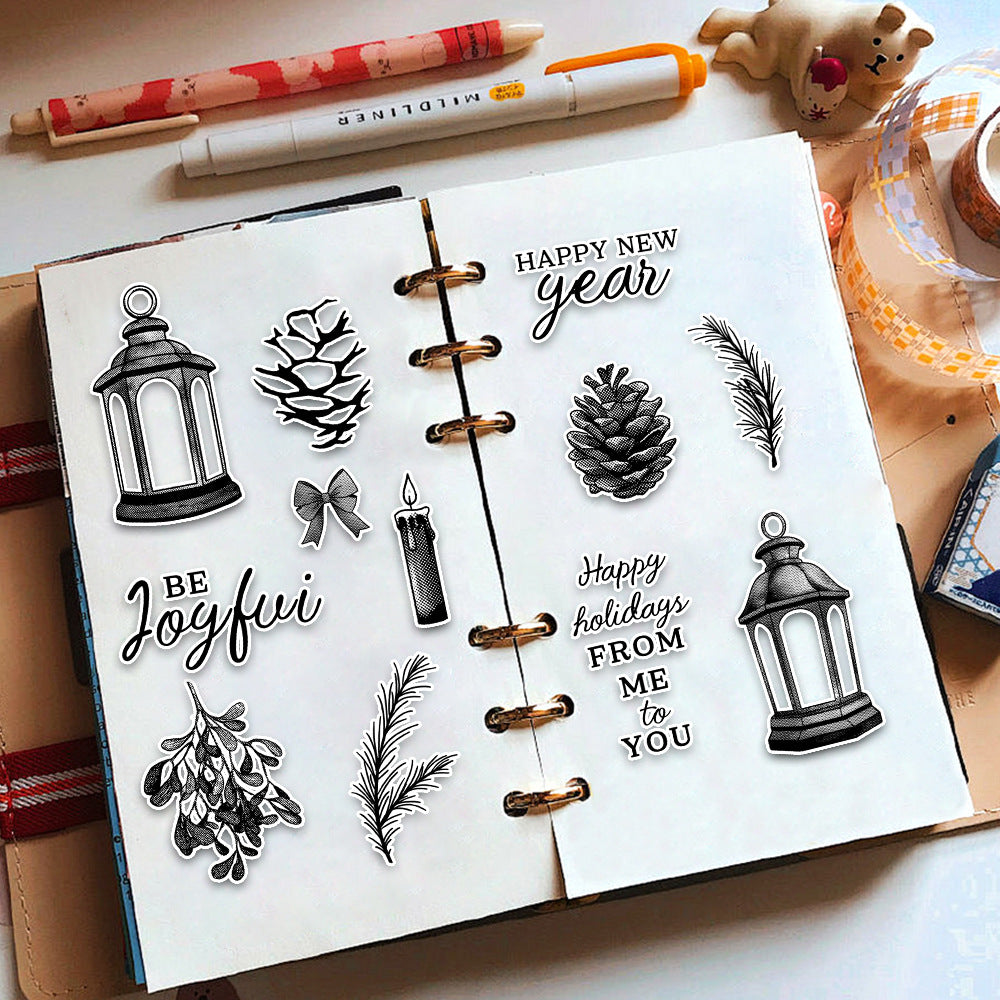 MILDLINER
HAPPY NEW
year
BE
Joyfui
Happy
holidays
FROM
ME
to
YOU
THE